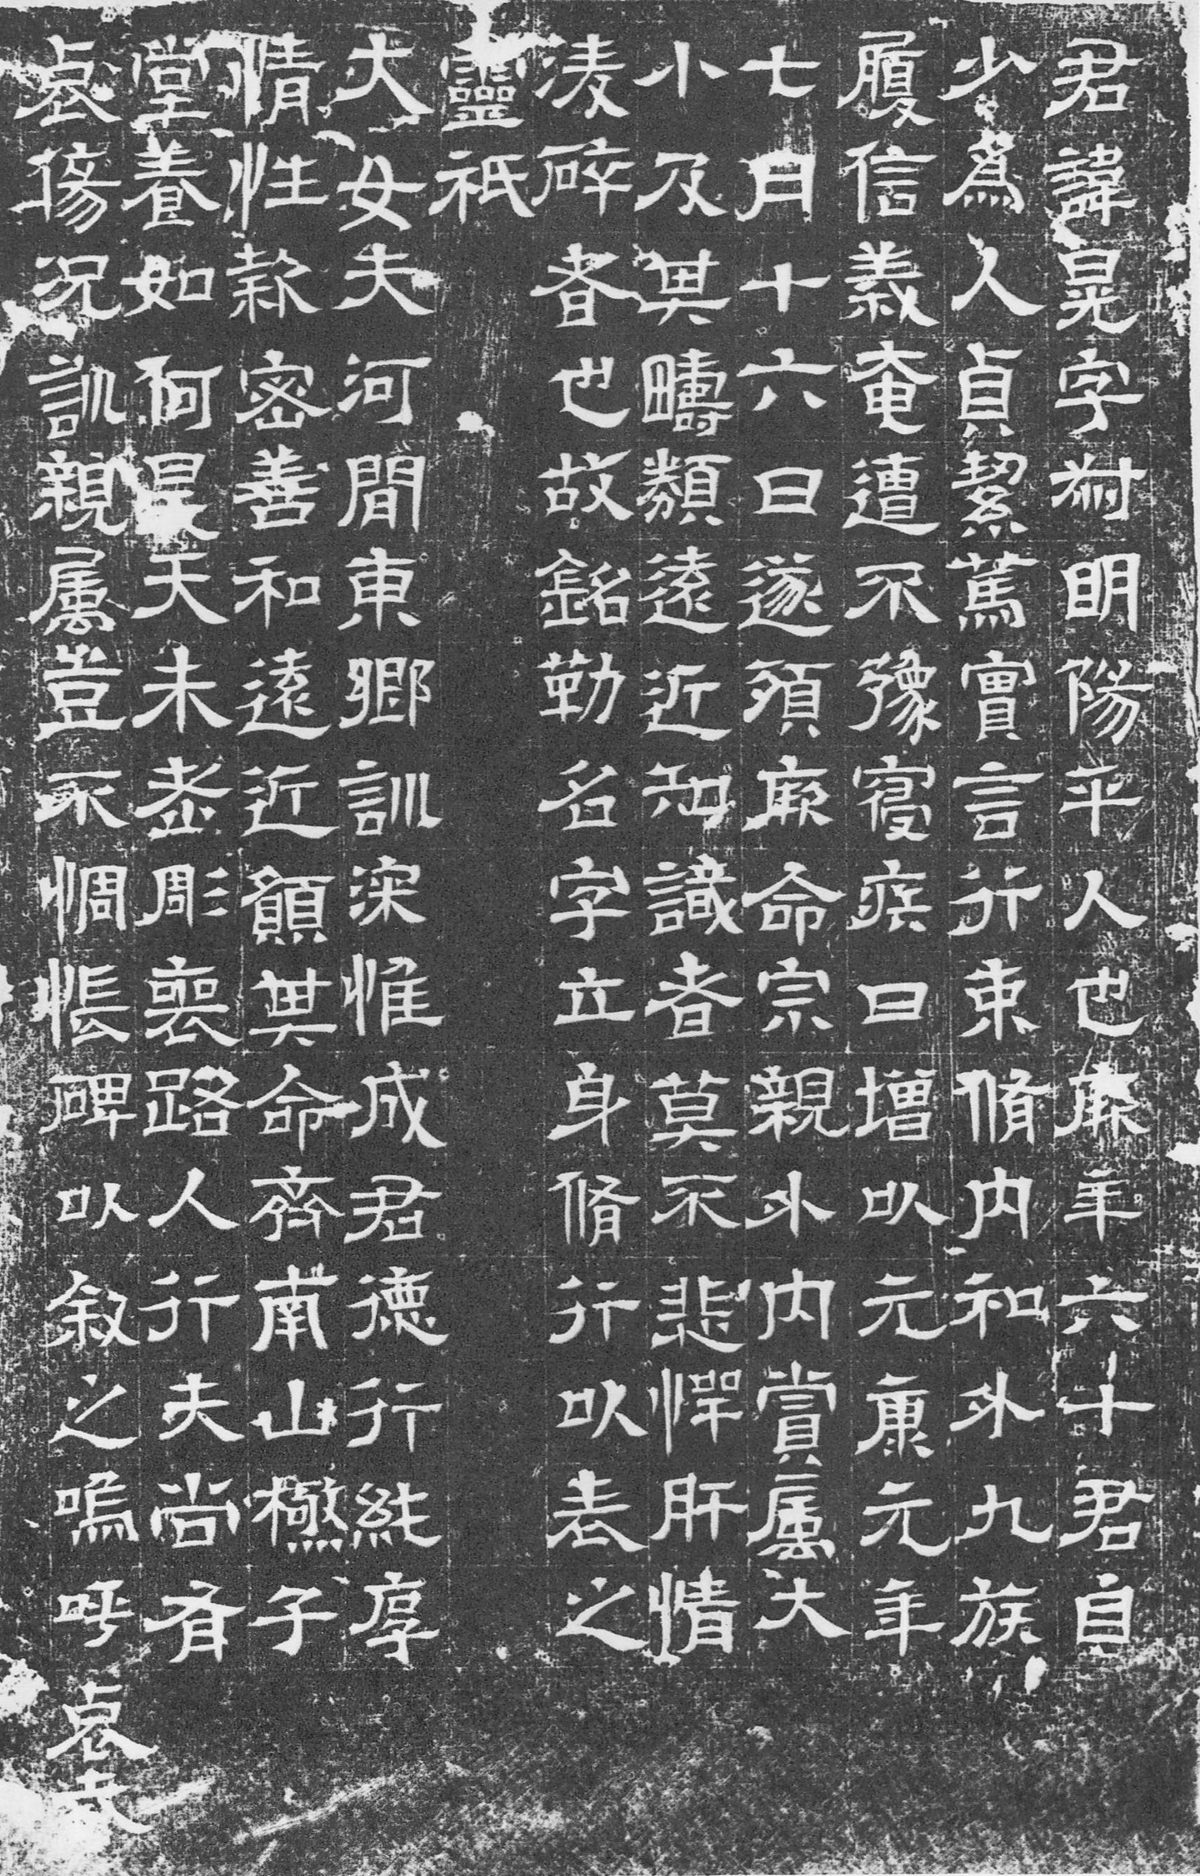 君諱晃字尌明陽平人也廉年六十君自
少爲人貞絜篤實言行束脩内和外九族
履信義奄遭不豫寑疾日增以元康元年
七月十六日遂殞厥命宗親外内賞属大
小及其疇類遠近知識者莫不悲惲肝情
凌碎者也故銘勒名字立身脩行以表之
靈祇
大女夫河間東鄉訓深惟成君德行純厚
情性款密善和遠近願其命齊南山檄子
堂養如何昊天未耋彫喪路人行夫尚有
哀傷況訓親属豈不惆悵碑以叙之嗚呼哀哉